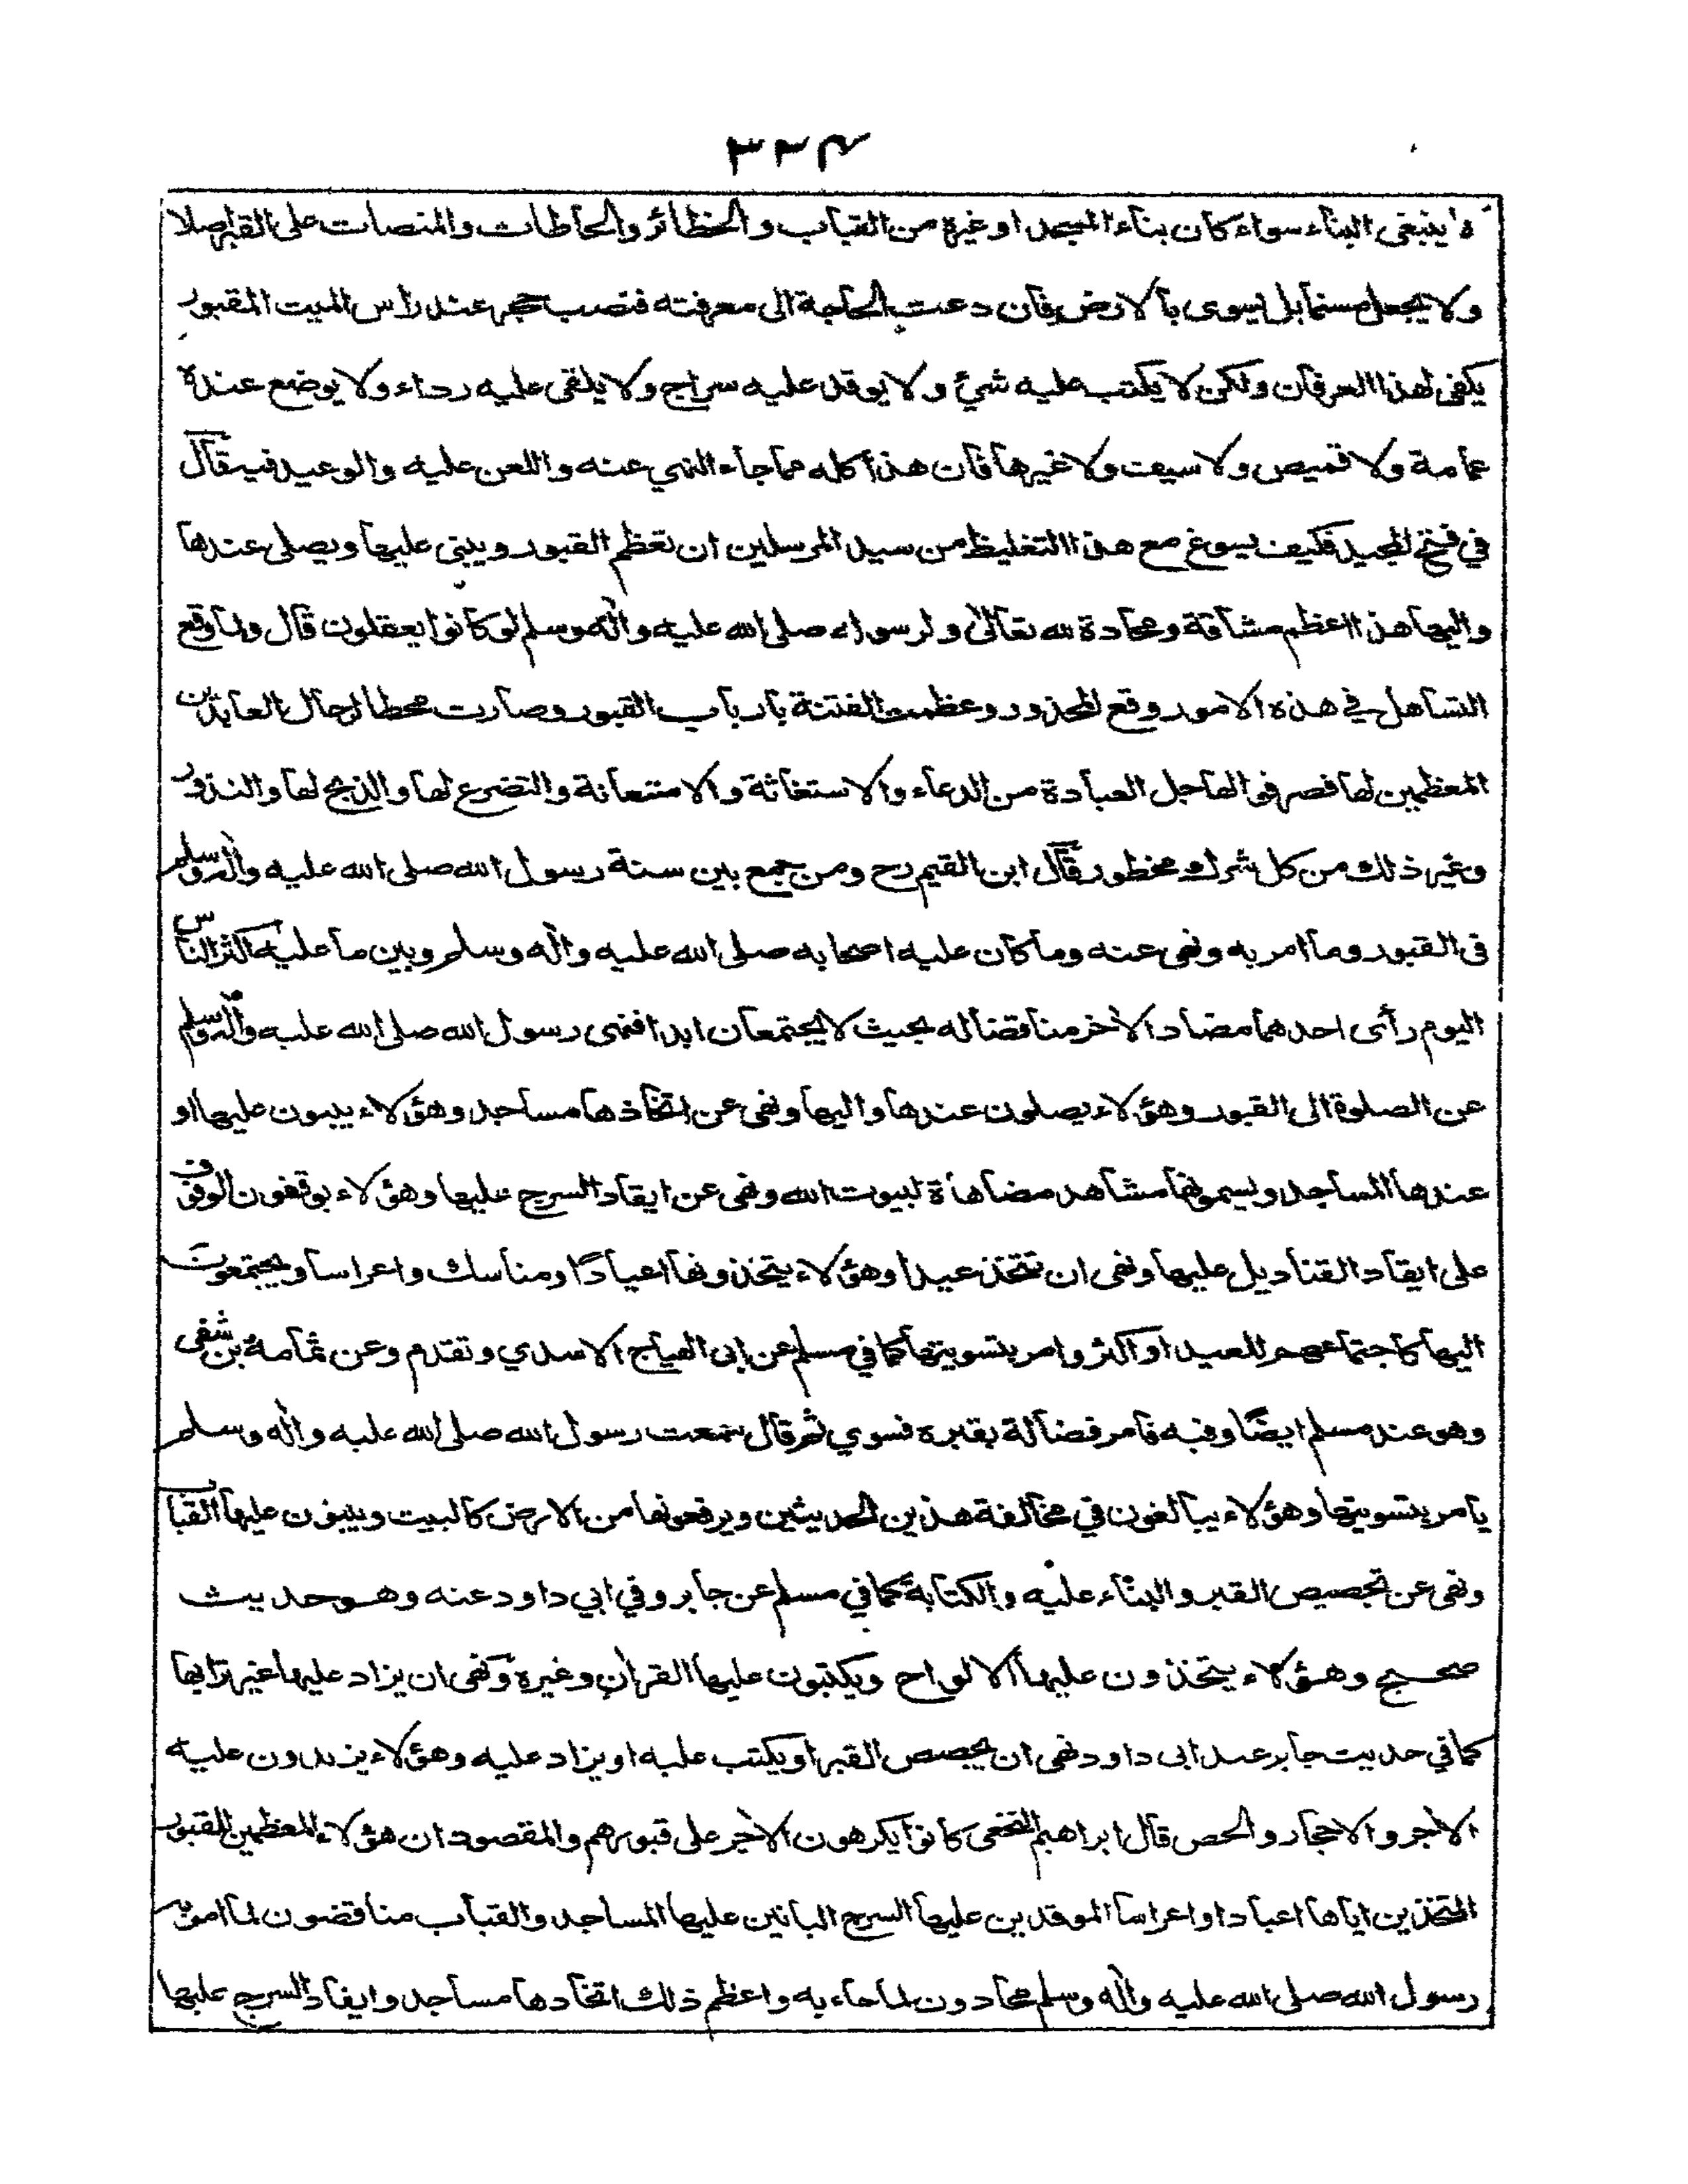 ٣٢٤
لا ينبغى البناء سواء كان بناء المسجد او غيره من القباب والحظائر والحاطات والمنصات على القبر اصلا
ولا يجعل مسنما بل يسوى بالارض فان دعت الحاجة الى معرفته فنصب حجر عند راس الميت المقبور
يكفى لهذا العرفان ولكن لا يكتب عليه شئ ولا يوقد عليه سراج ولا يلقى عليه رداء ولا يوضع عنده
عمامة ولا قميص ولا سيف ولا غيرها فان هذا كله مما جاء النهي عنه واللعن عليه والوعيد فيه قال
في فتح المجيد فكيف يسوغ مع هذا التغليظ من سيد المرسلين ان تعظم القبور ويبنى عليها ويصلى عندها
واليها هذا اعظم مشاقة ومحادة لله تعالى ولرسوله صلى الله عليه وآله وسلم لو كانوا يعقلون قال ولما وقع
التساهل في هذه الامور وقع المحذور وعظمت الفتنة بارباب القبور وصارت محطا لرحال العابدين
المعظمين لها فصرفوا لها جل العبادة من الدعاء والاستغاثة والاستعانة والتضرع لها والذبح لها والنذور
وغير ذلك من كل شرك محظور قال ابن القيم رح ومن جمع بين سنة رسول الله صلى الله عليه وآله وسلم
فى القبور وما امر به ونهى عنه وما كان عليه اصحابه صلى الله عليه وآله وسلم وبين ما عليه اكثر الناس
اليوم رأى احدهما مضادا لاخر مناقضا له بحيث لا يجتمعان ابدا فنهى رسول الله صلى الله عليه وآله وسلم
عن الصلوة الى القبور وهؤلاء يصلون عندها واليها ونهى عن اتخاذها مساجد وهؤلاء يبنون عليها او
عندها المساجد ويسمونها مشاهد مضاهاة لبيوت الله ونهى عن ايقاد السرج عليها وهؤلاء يوقفون الوقوف
على ايقاد القناديل عليها ونهى ان تتخذ عيدا وهؤلاء يتخذونها اعيادا ومناسك واعراسا ويجتمعون
اليها كاجتماعهم للعيد او اكثر وامر بتسويتها كما في مسلم عن ابى الهياج الاسدي وتقدم وعن ثمامة بن شفى
وهو عند مسلم ايضا وفيه فامر فضالة بقبره فسوي ثم قال سمعت رسول الله صلى الله عليه وآله وسلم
يامر بتسويتها وهؤلاء يبالغون في مخالفة هذين الحديثين ويرفعونها من الارض كالبيت ويبنون عليها القباب
ونهى عن تجصيص القبر والبناء عليه والكتابة كما في مسلم عن جابر وفي ابي داود عنه وهو حديث
صحيح وهؤلاء يتخذون عليها الالواح ويكتبون عليها القرآن وغيره ونهى ان يزاد عليها غير ترابها
كما في حديث جابر عند ابى داود نهى ان يجصص القبر او يكتب عليه او يزاد عليه وهؤلاء يزيدون عليه
الاجر والاحجار والجص قال ابراهيم النخعى كانوا يكرهون الاجر على قبورهم والمقصود ان هؤلاء المعظمين للقبور
المتخذين اياها اعيادا واعراسا الموقدين عليها السرج البانين عليها المساجد والقباب مناقضون لما امر به
رسول الله صلى الله عليه وآله وسلم محادون لما جاء به واعظم ذلك اتخاذها مساجد وايقاد السرج عليها